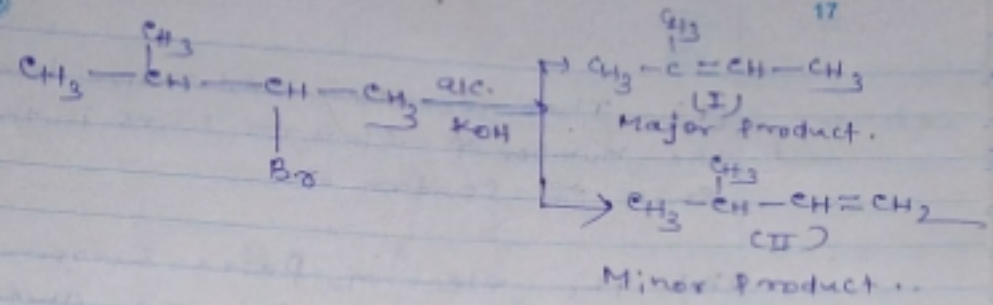 17
CH3
CH3 — CH — CH — CH3
Br
alc.
KOH
CH3
CH3 - C = CH — CH3
(I)
Major product.
CH3
CH3 — CH — CH = CH2
(II)
Minor product..